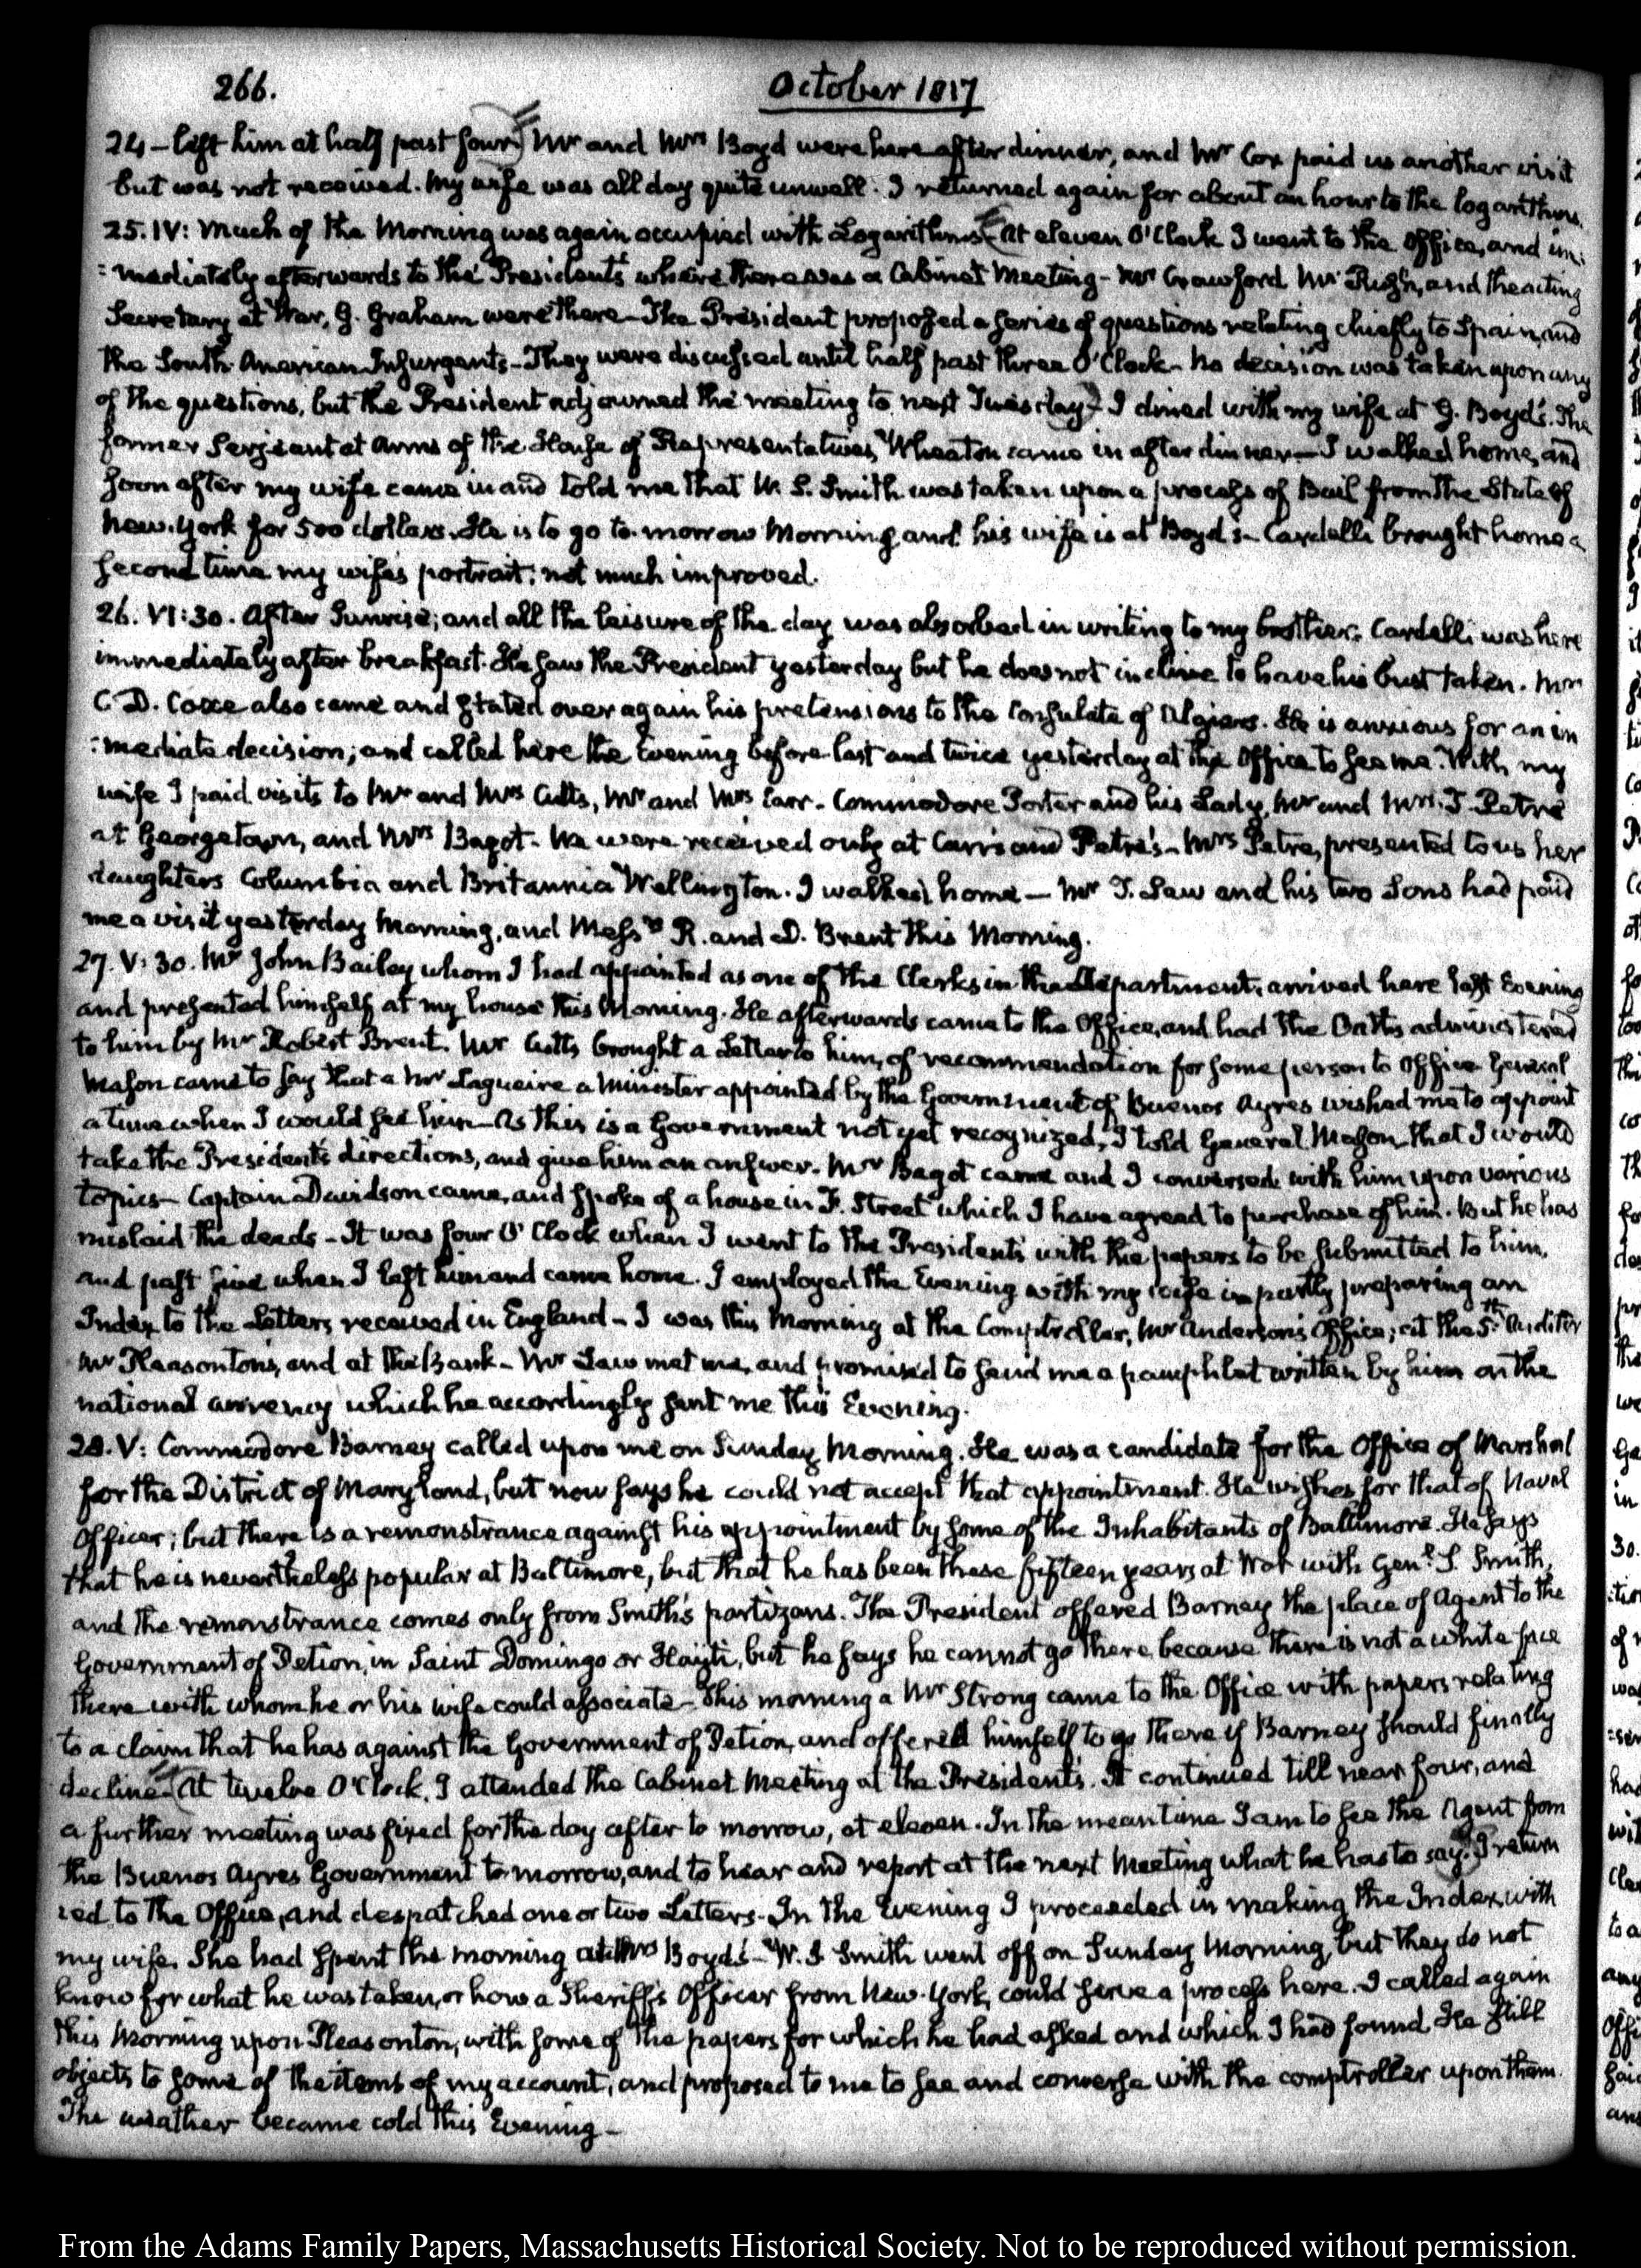 266.
October 1817
24 – left him at half past four) Mr and Mrs Boyd were here after dinner, and Mr Cox paid us another visit
but was not received. My wife was all day quite unwell. I returned again for about an hour to the logarithms.
25. IV: Much of the Morning was again occupied with Logarithms – (At eleven O'Clock I went to the Office, and im:
:mediately afterwards to the President's where there was a Cabinet Meeting – Mr Crawford Mr Rush, and the acting
Secretary at War, G. Graham were there – The President proposed a series of questions relating chiefly to Spain, and
the South-American Insurgents – They were discussed until half past three O'Clock – No decision was taken upon any
of the questions, but the President adjourned the meeting to next Tuesday –) I dined with my wife at G. Boyd's. The
former Serjeant at Arms of the House of Representatives, Wheaton came in after dinner – I walked home, and
soon after my wife came in and told me that W. S. Smith was taken upon a process of Bail from the State of
New-York for 500 dollars. He is to go to-morrow Morning and his wife is at Boyd's – Cardelli brought home a
second time my wife's portrait; not much improved.
26. VI:30. After Sunrise; and all the leisure of the day was absorbed in writing to my brother. Cardelli was here
immediately after breakfast. He saw the President yesterday but he does not incline to have his bust taken. Mr
C. D. Coxe also came and stated over again his pretensions to the Consulate of Algiers. He is anxious for an im
:mediate decision; and called here the Evening before last and twice yesterday at the Office to see me. With my
wife I paid visits to Mr and Mrs Cutts, Mr and Mrs Carr – Commodore Porter and his Lady, Mr and Mrs. T. Petre
at Georgetown, and Mrs Bagot – We were received only at Carr's and Petre's – Mrs Petre, presented to us her
daughters Columbia and Britannia Wellington. I walked home – Mr T. Law and his two Sons had paid
me a visit yesterday Morning, and Messrs R. and D. Brent this Morning.
27. V:30. Mr John Bailey whom I had appointed as one of the Clerks in the Department, arrived here last Evening
and presented himself at my house this Morning. He afterwards came to the Office, and had the Oaths administered
to him by Mr Robert Brent. Mr Cutts brought a Letter to him, of recommendation for some person to Office General
Mason came to say that a Mr a Minister appointed by the Government of Buenos Ayres wished me to appoint
a time when I would see him – As this is a Government not yet recognized, I told General Mason that I would
take the President's directions, and give him an answer. Mr Bagot came and I conversed with him upon various
topics – Captain Davidson came, and spoke of a house in F. Street which I have agreed to purchase of him. But he has
mislaid the deeds – It was four O'Clock when I went to the President's with the papers to be submitted to him,
and past five when I left him and came home. I employed the Evening with my wife in partly preparing an
Index to the Letters received in England – I was this Morning at the Comptroller, Mr Anderson's Office; at the 5th Auditor
Mr Pleasonton's, and at the Bank – Mr Law met me, and promised to send me a pamphlet written by him on the
national currency which he accordingly sent me this Evening.
28. V: Commodore Barney called upon me on Sunday Morning. He was a candidate for the Office of Marshal
for the District of Maryland, but now says he could not accept that appointment. He wishes for that of Naval
Officer; but there is a remonstrance against his appointment by some of the Inhabitants of Baltimore. He says
that he is nevertheless popular at Baltimore, but that he has been these fifteen years at War with Genl S. Smith,
and the remonstrance comes only from Smith's partizans. The President offered Barney the place of Agent to the
Government of Petion, in Saint Domingo or Hayti, but he says he cannot go there because there is not a white face
there with whom he or his wife could associate – This morning a Mr Strong came to the Office with papers relating
to a claim that he has against the Government of Petion, and offered himself to go there if Barney should finally
decline – (At twelve O'Clock, I attended the Cabinet Meeting at the President's. It continued till near four, and
a further meeting was fixed for the day after to morrow, at eleven. In the meantime I am to see the Agent from
the Buenos Ayres Government to-morrow, and to hear and report at the next Meeting what he has to say.) I return
:ed to the Office, and despatched one or two Letters – In the Evening I proceeded in making the Index, with
my wife. She had spent the morning at Mrs Boyd's – W. S. Smith went off on Sunday Morning, but they do not
know for what he was taken, or how a Sheriff's Officer from New-York, could serve a process here. I called again
this Morning upon Pleasonton, with some of the papers for which he had asked and which I had found. He still
objects to some of the items of my account, and proposed to me to see and converse with the comptroller upon them.
The weather became cold this Evening –
From the Adams Family Papers, Massachusetts Historical Society. Not to be reproduced without permission.